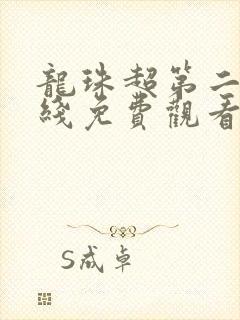 龍珠超第二
綫免費觀看
S成卓